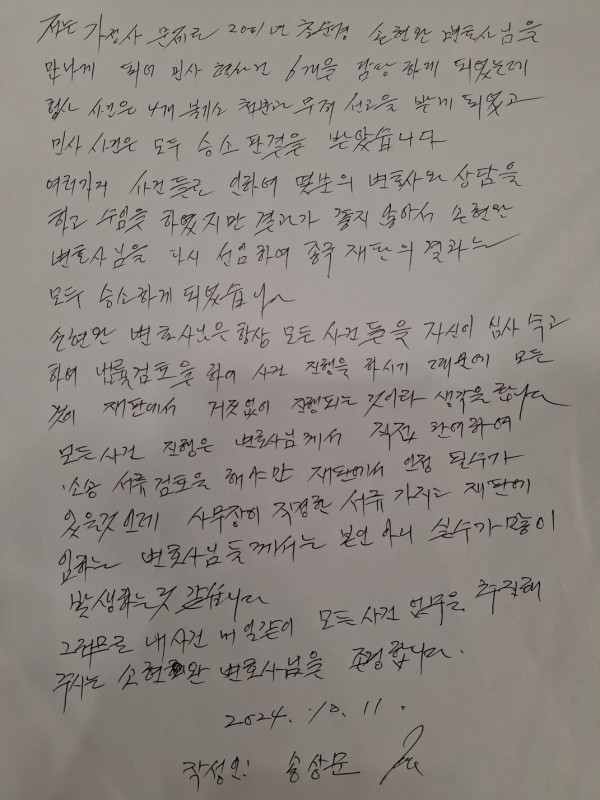 저는 가정사 문제로 2001년 초순경 손현완 변호사님을
만나게 되어 민사 형사사건 6개을 담당 하게 되었는데
형사 사건은 4개 불체소 처분과 무죄 선고을 받게 되였고
민사 사건은 모두 승소 판결을 받았습니다
여러가지 사건들로 인하여 몇분의 변호사와 상담을
하고 수임을 하였지만 결과가 좋지 않아서 손현완
변호사님을 다시 선임하여 종국 재판의 결과는
모두 승소하게 되었습니다
손현완 변호사님은 항상 모든 사건들을 자신이 심사숙고
하여 법률검토을 하여 사건 진행을 하시기 때문에 모든
것이 재판에서 거짓없이 진행되는 것이라 생각을 합니다
모든 사건 진행은 변호사님께서 직접 관여하여
소송 서류검토을 해야만 재판에서 인정 될수가
있을것인데 사무장이 작정한 서류 가지고 재판에
임하는 변호사님들께서는 본의 아니 실수가 많이
발생하는것 같습니다
그러므로 내사건 내일같이 모든사건 업무을 추진해
주시는 손현완 변호사님을 존경합니다.
2024. 10. 11.
작성인: 송상문